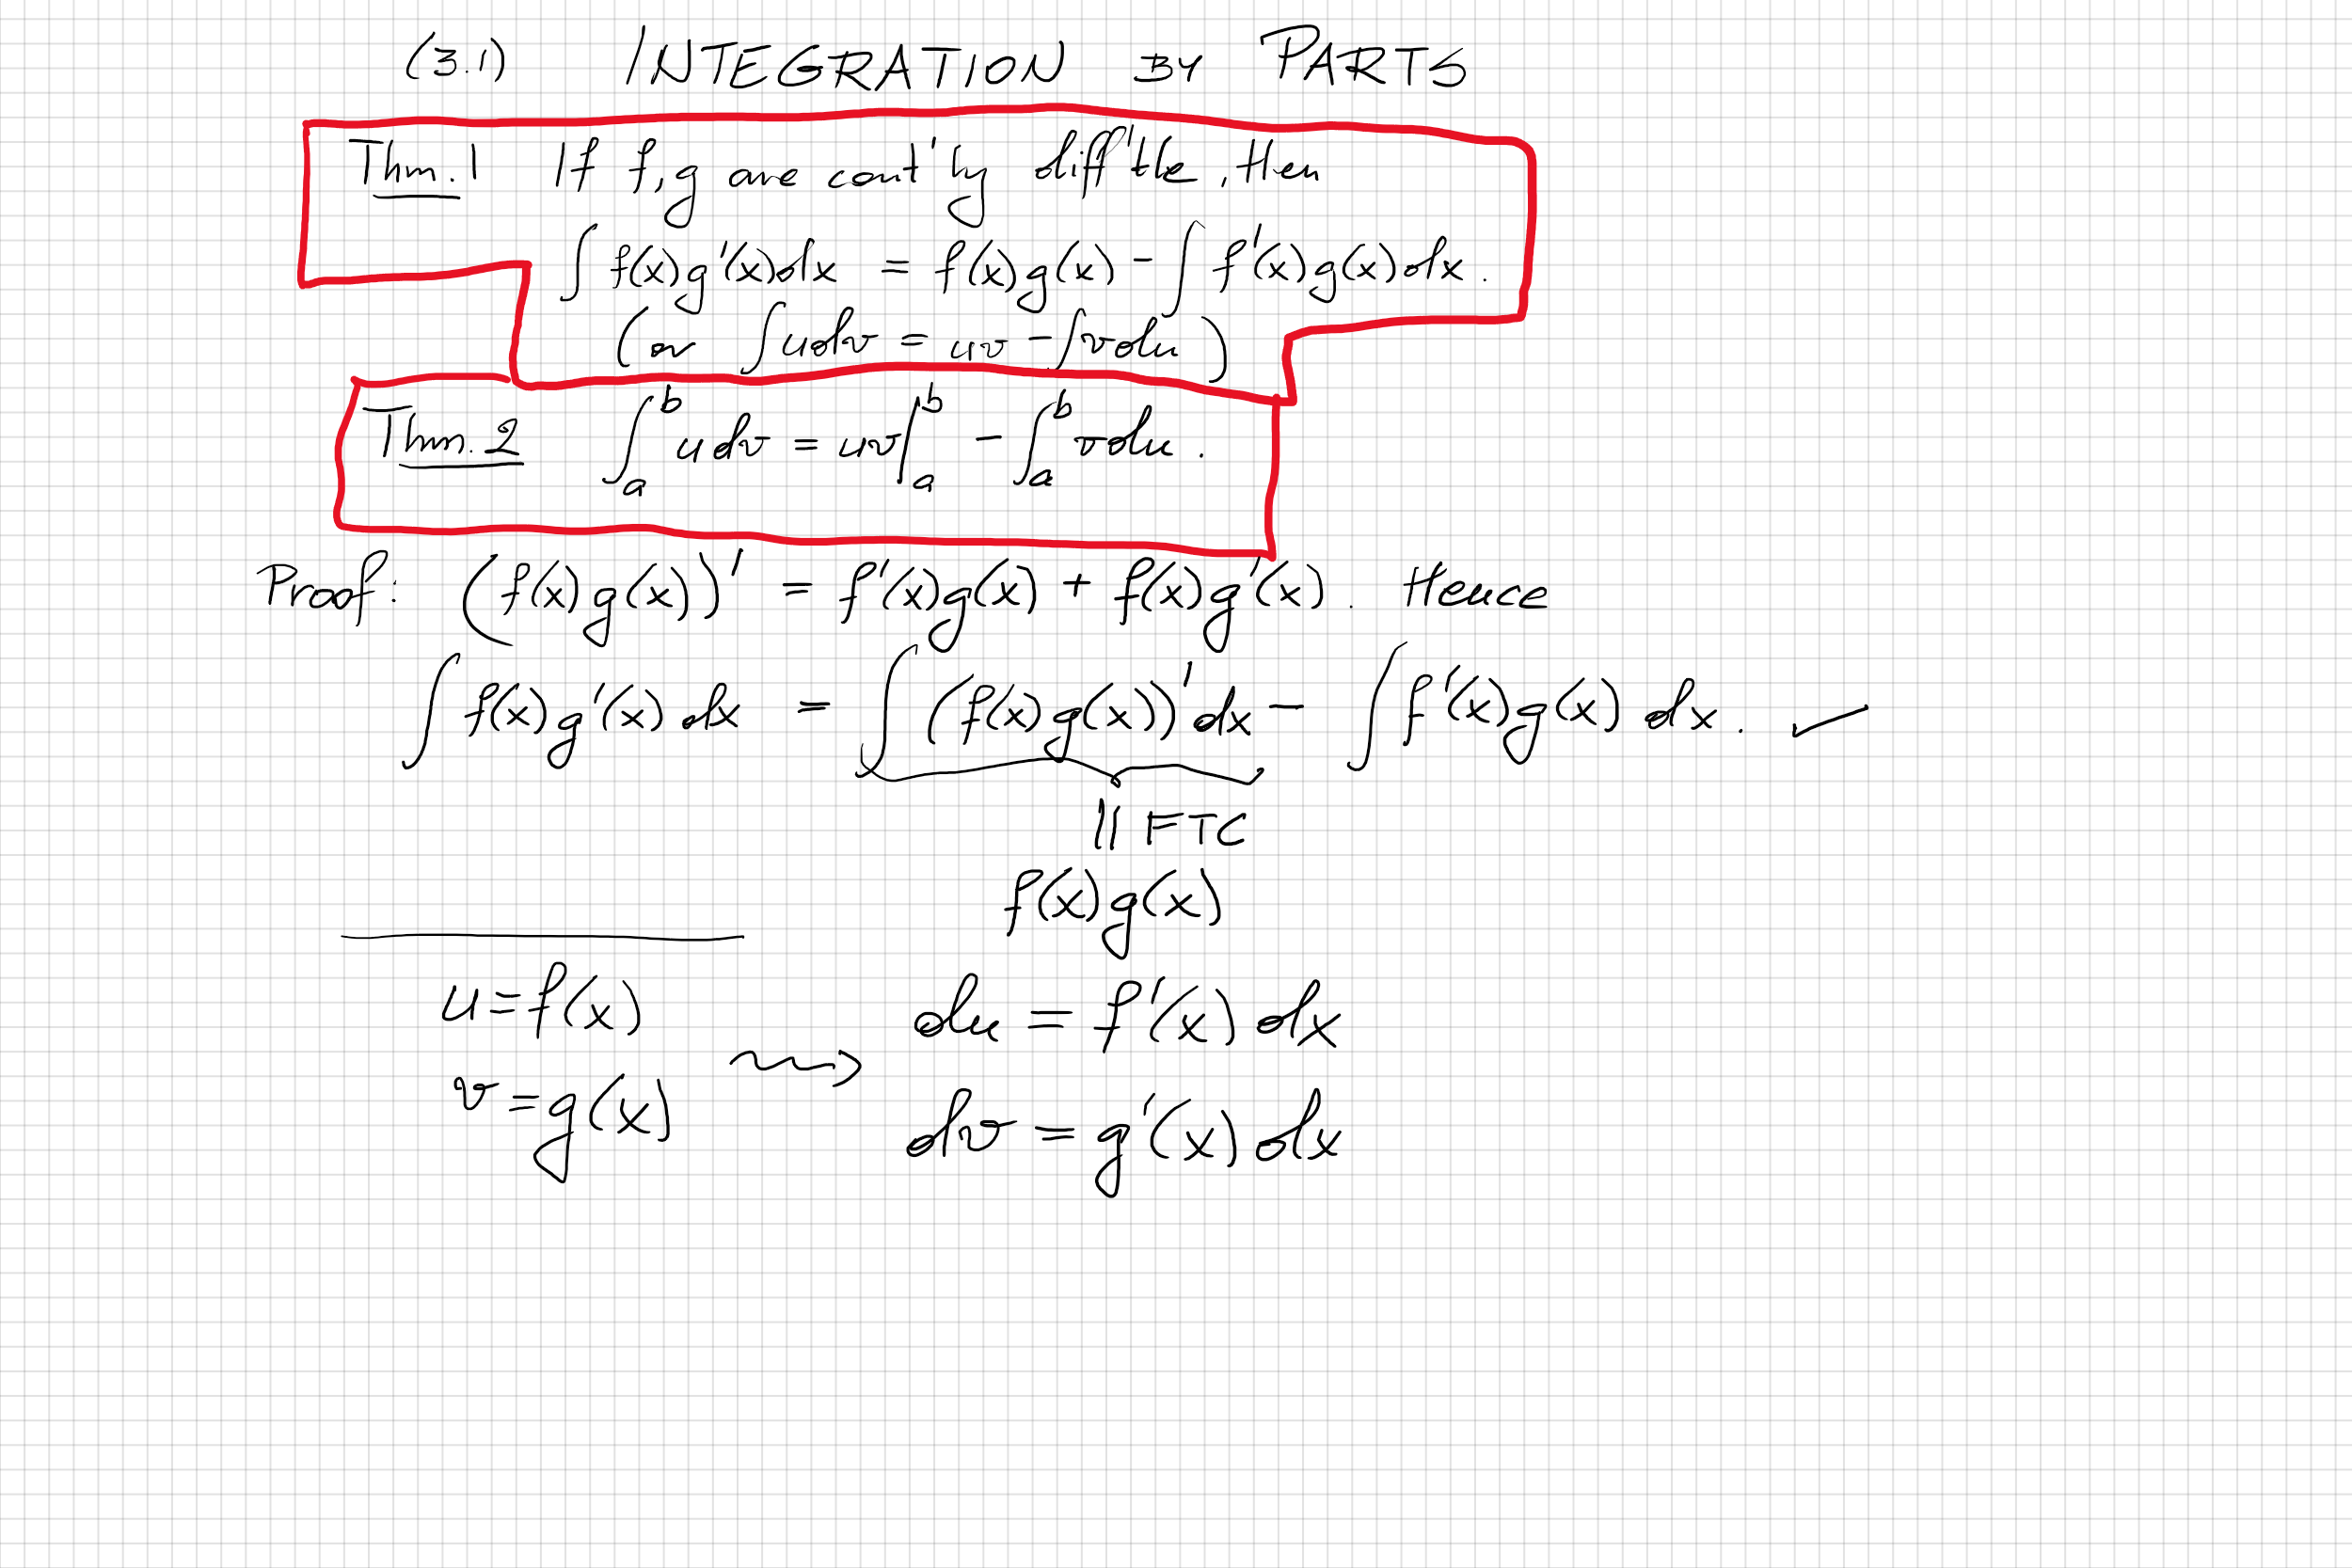 (3.1) INTEGRATION BY PARTS
Thm. 1 If f, g are cont'ly diff'ble, then
∫ f(x) g'(x) dx = f(x) g(x) - ∫ f'(x) g(x) dx.
(or ∫ u dv = uv - ∫ v du)
Thm. 2 ∫_a^b u dv = uv |_a^b - ∫_a^b v du.
Proof: (f(x) g(x))' = f'(x) g(x) + f(x) g'(x). Hence
∫ f(x) g'(x) dx = ∫ (f(x) g(x))' dx - ∫ f'(x) g(x) dx. ✓
|| FTC
f(x) g(x)
u = f(x) ⇝ du = f'(x) dx
v = g(x) dv = g'(x) dx